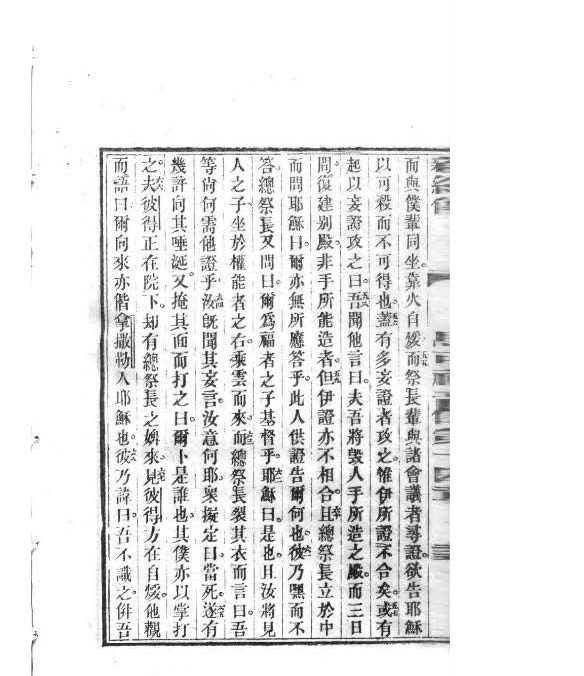 而與僕輩同坐靠火自煖而祭長輩與諸會議者尋證欲告耶穌
以可殺而不可得也蓋有多妄證者攻之惟伊所證不合矣或有
起以妄證攻之曰吾聞他言曰夫吾將毀人手所造之殿而三日
間復建别殿非手所能造者但伊證亦不相合且總祭長立於中
而問耶穌曰爾亦無所應答乎此人供證告爾何也彼乃嘿而不
答總祭長又問曰爾為福者之子基督乎耶穌曰是也且汝將見
人之子坐於權能者之右乘雲而來而總祭長裂其衣而言曰吾
等尚何需他證乎汝既聞其妄言汝意何耶衆擬定曰當死遂有
幾許向其唾涎又掩其面而打之曰爾卜是誰也其僕亦以掌打
之夫彼得正在院下却有總祭長之婢來見彼得方在自煖他觀
而語曰爾向來亦偕拿撒勒人耶穌也彼乃諱曰吾不識之併吾